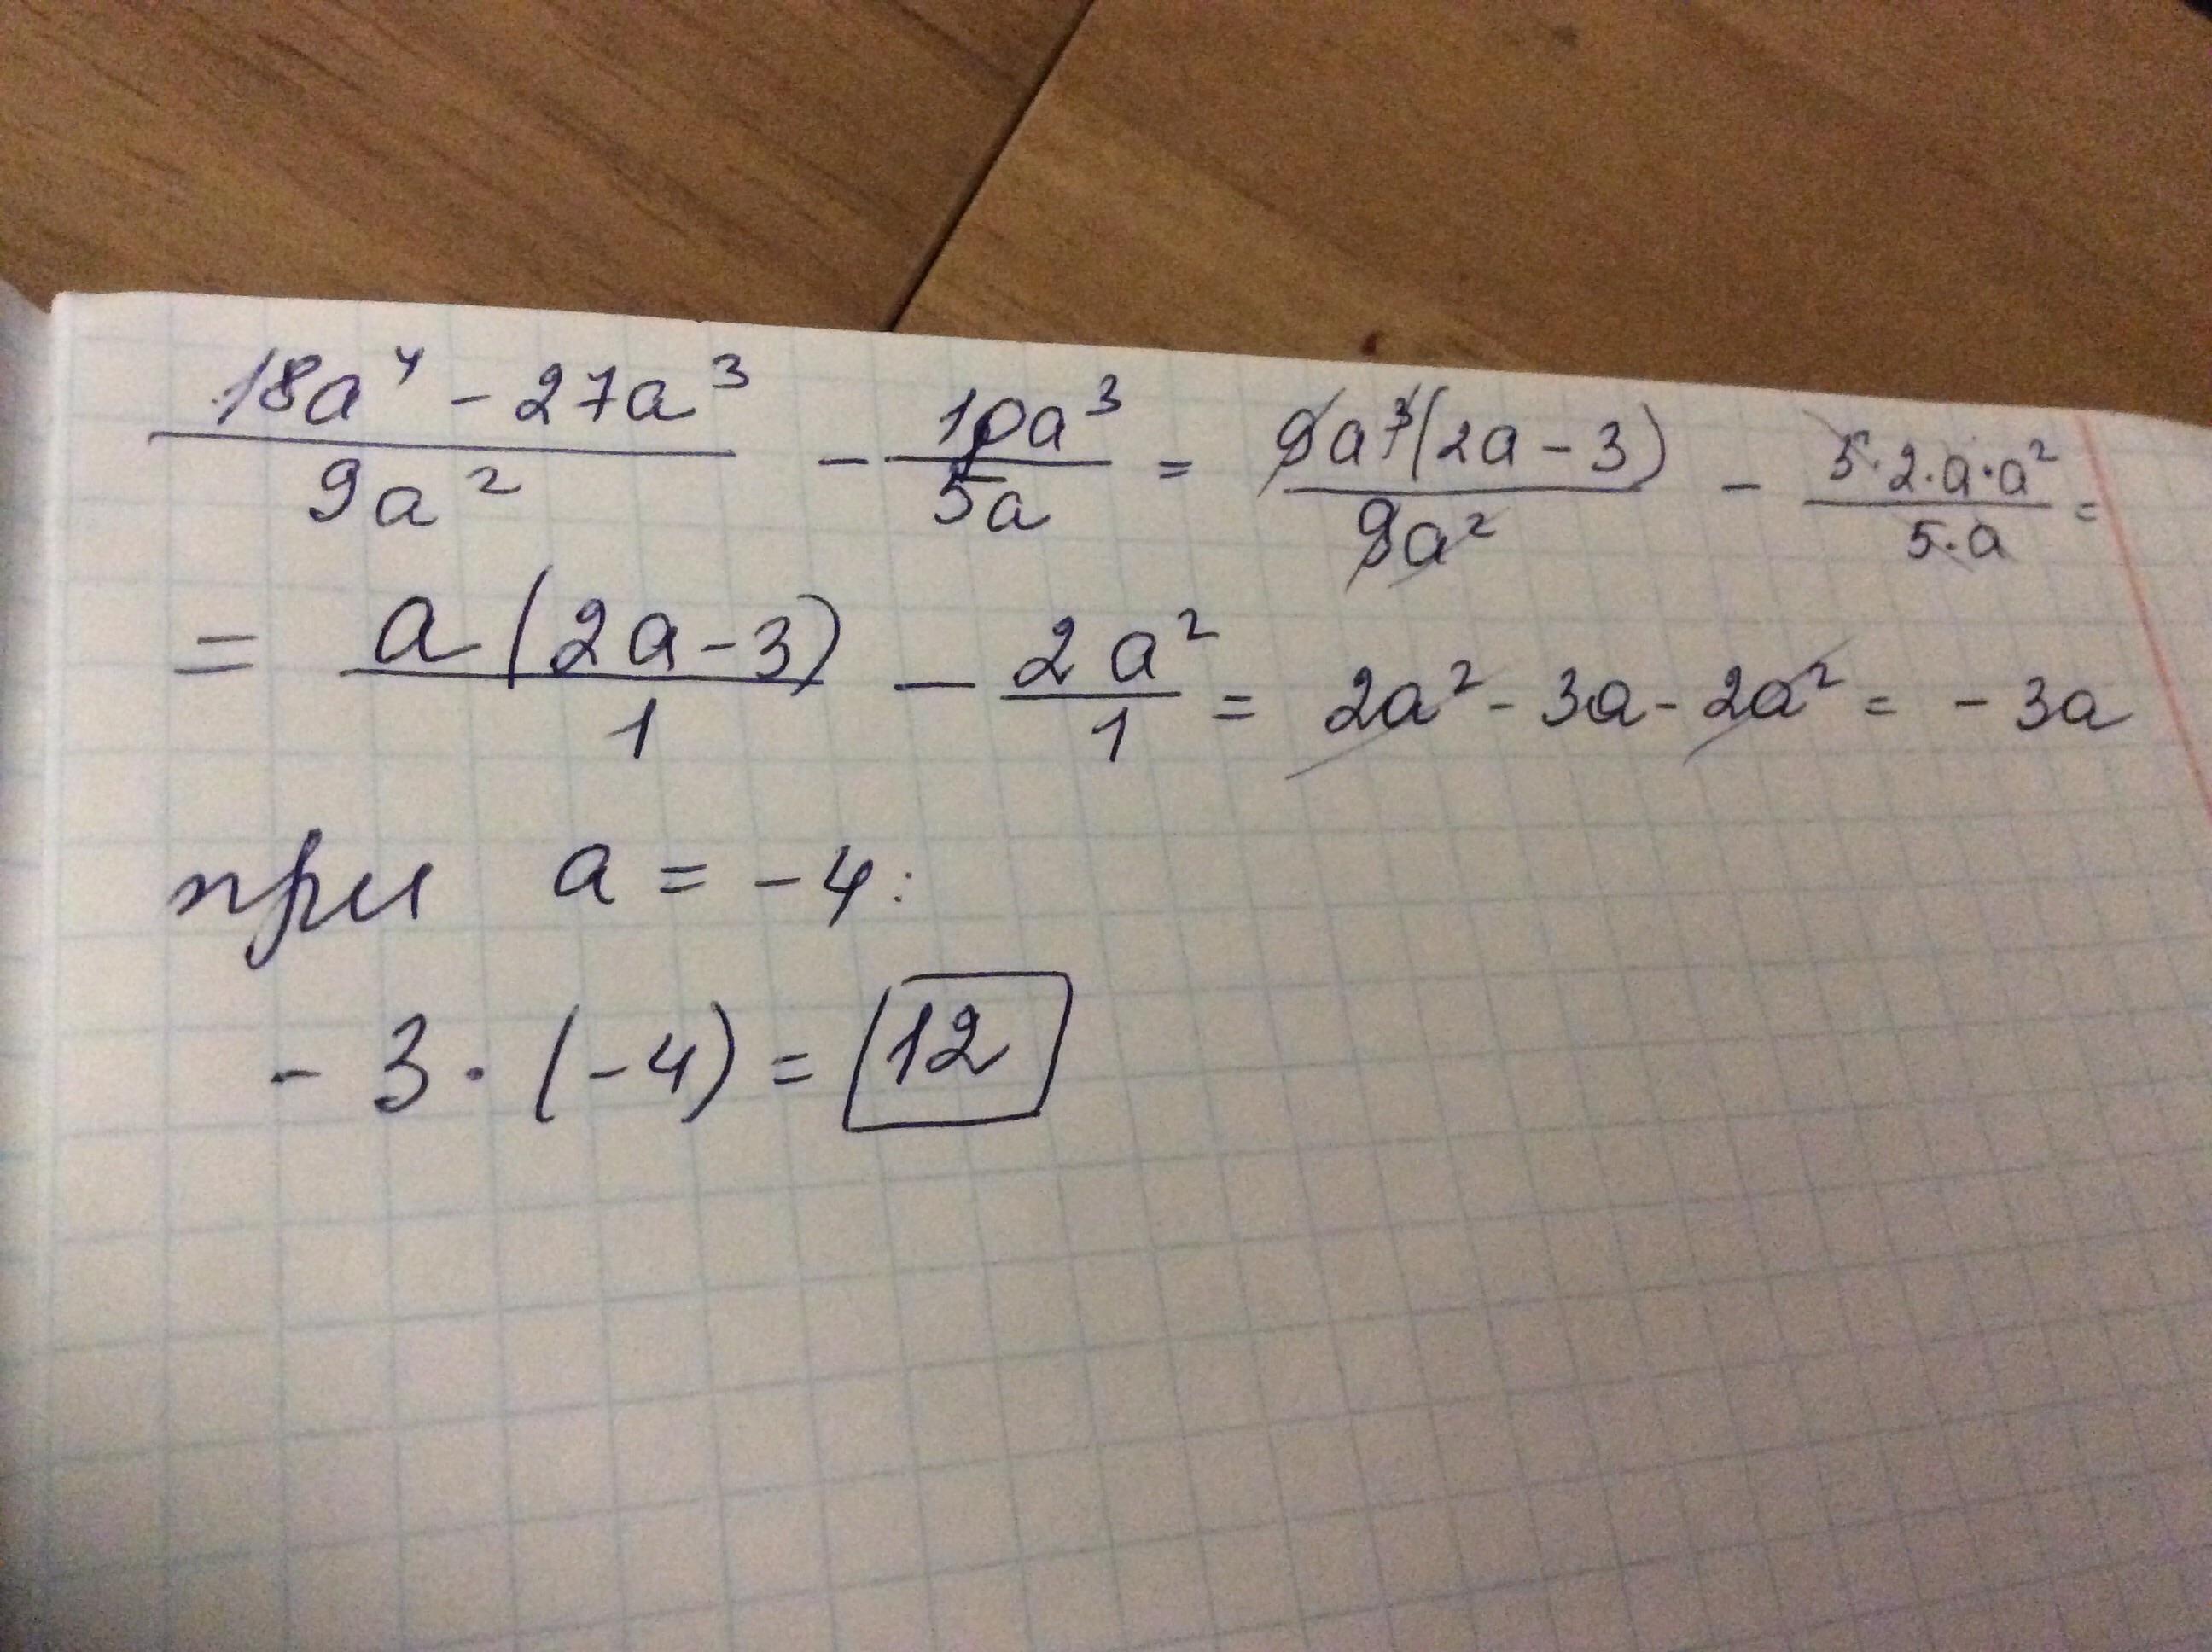 (18a⁴ - 27a³)/(9a²) - (10a³)/(5a) = (9a³(2a - 3))/(9a²) - (5·2·a·a²)/(5·a) =
= (a(2a-3))/1 - (2a²)/1 = 2a² - 3a - 2a² = - 3a
при a = -4:
- 3 · (-4) = 12